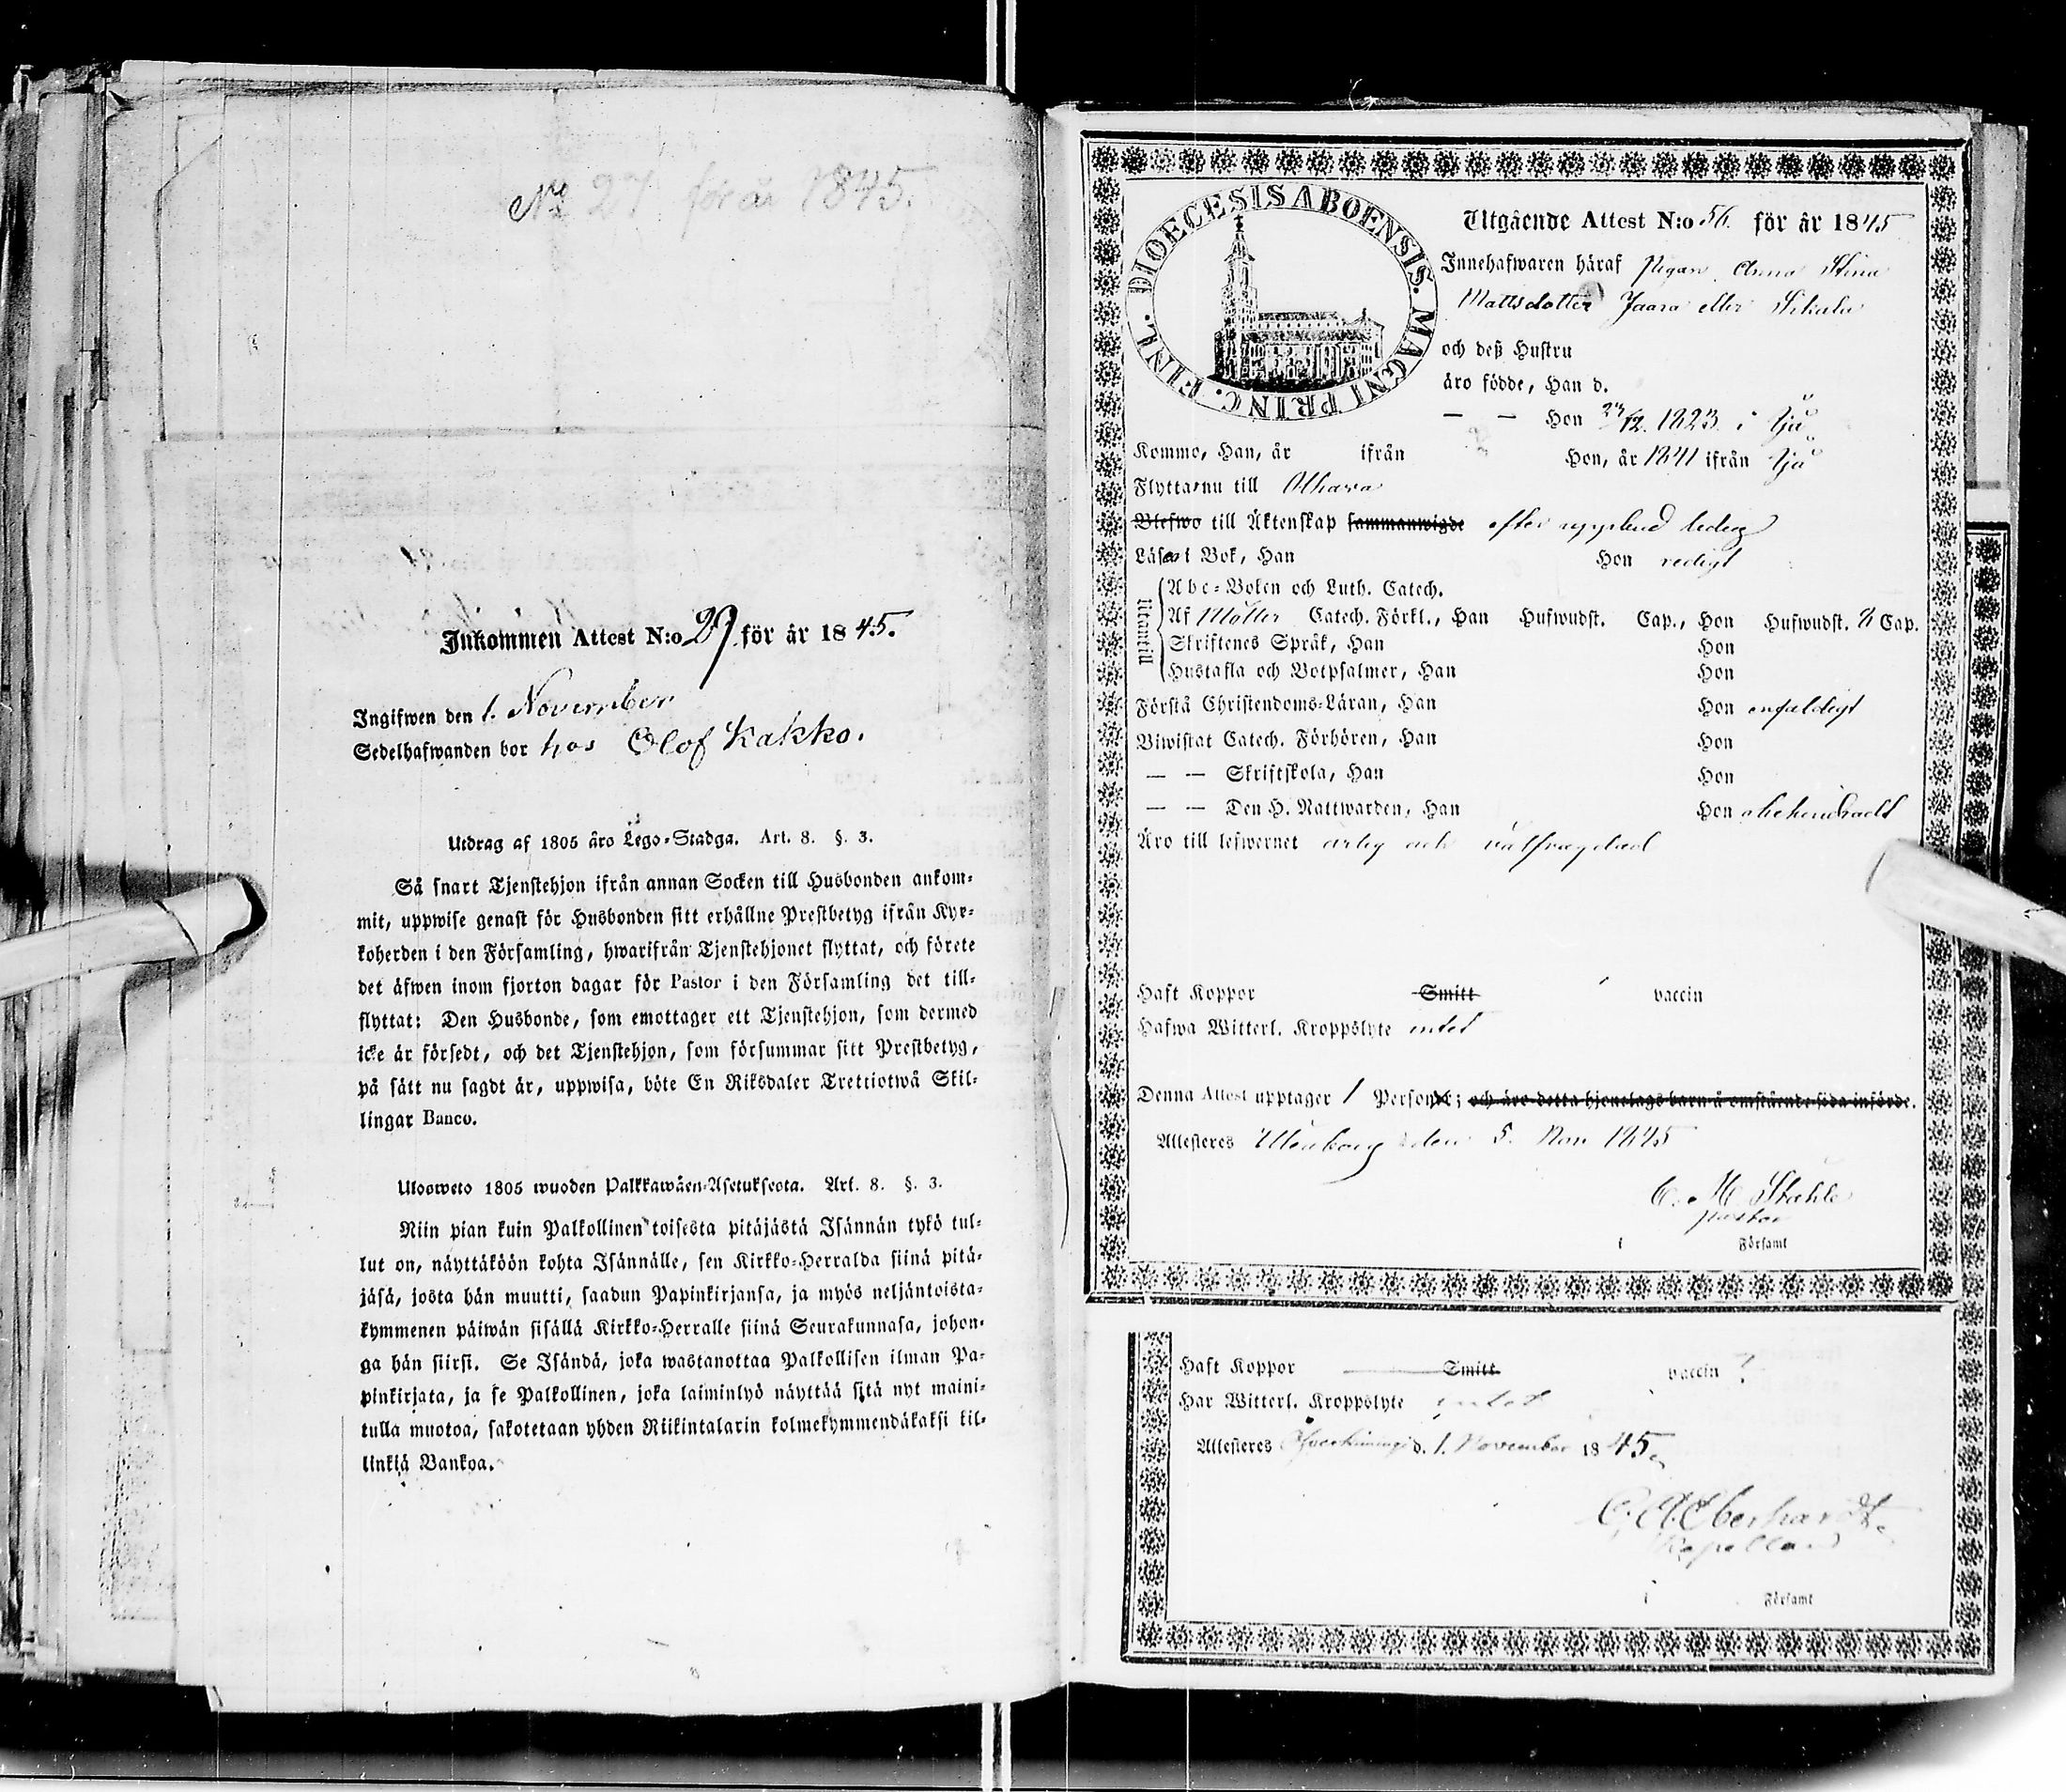 No 27 för år 1845.
Inkommen Attest N:o 27 för år 1845.
Ingifwen den 1. November
Sedelhafwanden bor hos Olof Kakko.
Utdrag af 1805 års Lego-Stadga. Art. 8. §. 3.
Så snart Tjenstehjon ifrån annan Socken till Husbonden ankom-
mit, uppwise genast för Husbonden sitt erhållne Prestbetyg ifrån Kyr-
koherden i den Församling, hwarifrån Tjenstehjonet flyttat, och förete
det äfwen inom fjorton dagar för Pastor i den Församling det till-
flyttat: Den Husbonde, som emottager ett Tjenstehjon, som dermed
icke är försedt, och det Tjenstehjon, som försummar sitt Prestbetyg,
på sätt nu sagdt är, uppwisa, böte En Riksdaler Trettiotwå Skil-
lingar Banco.
Ulosweto 1805 wuoden Palkkawäen-Asetuksesta. Art. 8. §. 3.
Niin pian kuin Palkollinen toisesta pitäjästä Isännän tykö tul-
lut on, näyttäköön kohta Isännälle, sen Kirkko-Herralda siinä pitä-
jäsä, josta hän muutti, saadun Papinkirjansa, ja myös neljäntoista-
kymmenen päiwän sisällä Kirkko-Herralle siinä Seurakunnasa, johon-
ga hän siirsi. Se Isändä, joka wastanottaa Palkollisen ilman Pa-
pinkirjata, ja se Palkollinen, joka laiminlyö näyttää sitä nyt maini-
tulla muotoa, sakotetaan yhden Riikintalarin kolmekymmendäkaksi kil-
linkiä Bankoa.
DIOECESIS ABOENSIS. MAGNI PRINC. FINL.
Utgående Attest N:o 56. för år 1845
Innehafwaren häraf Pigan Anna Stina
Mattsdotter Jaara eller
och deß Hustru
äro födde, Han d.
— — Hon 23/12. 1823. i Ijå
Komme, Han, år ifrån Hon, år 1841 ifrån Ijå
Flytta nu till
Blefwo till Äktenskap sammanwigde efter uppbud ledig
Läsa i Bok, Han Hon redigt
Utantill
Abc-Boken och Luth. Catech.
Af Möller Catech. Förkl., Han Hufwudst. Cap., Hon Hufwudst. 8 Cap.
Skriftenes Språk, Han Hon
Hustafla och Botpsalmer, Han Hon
Förstå Christendoms-Läran, Han Hon enfaldigt
Biwistat Catech. Förhören, Han Hon
— — Skriftskola, Han Hon
— — Den H. Nattwarden, Han Hon obehindradt
Äro till lefwernet ärlig och välfrägdad
Haft Koppor Smitt vaccin
Hafwa Witterl. Kroppslyte intet
Denna Attest upptager 1 Person; och äro detta hjonelags barn å omstående sida införde.
Attesteres Uleåborg den 5. Nov 1845
C. M. Ståhle
pastor
i Församl
Haft Koppor Smitt vaccin
Har Witterl. Kroppslyte intet
Attesteres d. 1. November 1845.
C. A. Eberhardt.
Kapellan
i Församl